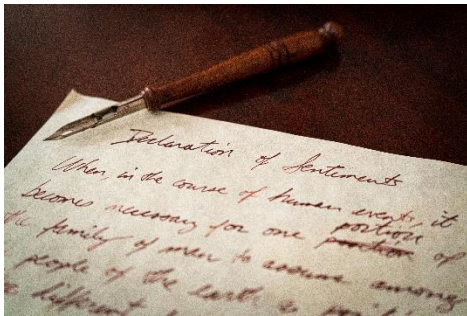 Declaration of Sentiments
When, in the course of human events, it
becomes necessary for one portion of
the family of man to assume among
people of the earth a
different